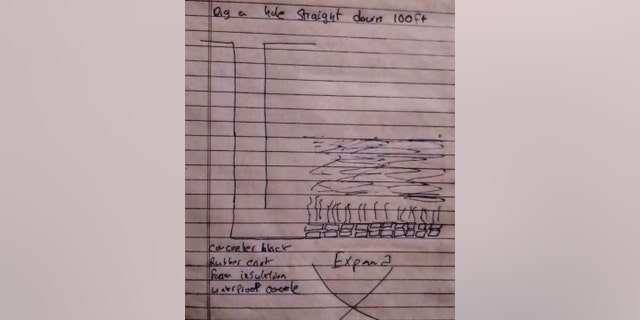 Dig a hole straight down 100ft
concreter block
Rubber coat
foam insulation
waterproof concrete
Expand